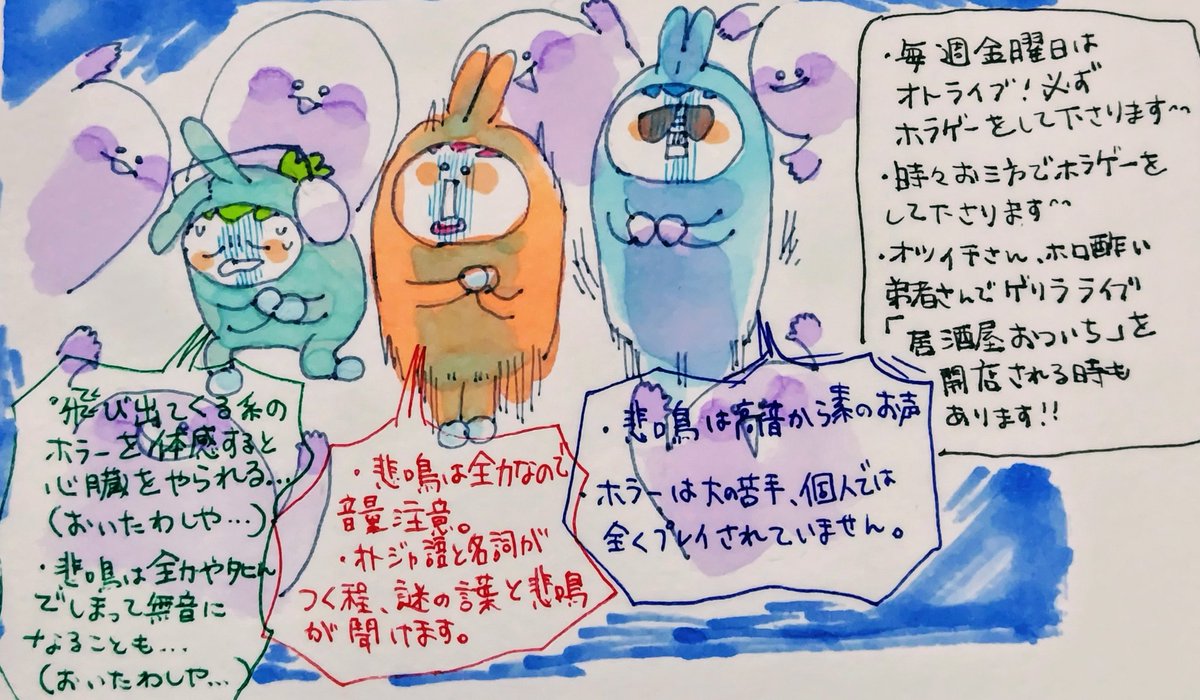 ・毎週金曜日は
オトライブ!必ず
ホラゲーをして下さります^^
・時々お三方でホラゲーを
して下さります^^
・オツイチさん、ホロ酔い
弟者さんでゲリラライブ
「居酒屋おついち」を
開店される時も
あります!!
・飛び出てくる系の
ホラーを体感すると
心臓をやられる…
(おいたわしや…)
・悲鳴は全力や死ん
でしまって無音に
なることも…
(おいたわしや…)
・悲鳴は全力なので
音量注意。
・朴ジャ語と名詞が
つく程、謎の言葉と悲鳴
が聞けます。
・悲鳴は高音から素のお声
・ホラーは大の苦手、個人では
全くプレイされていません。